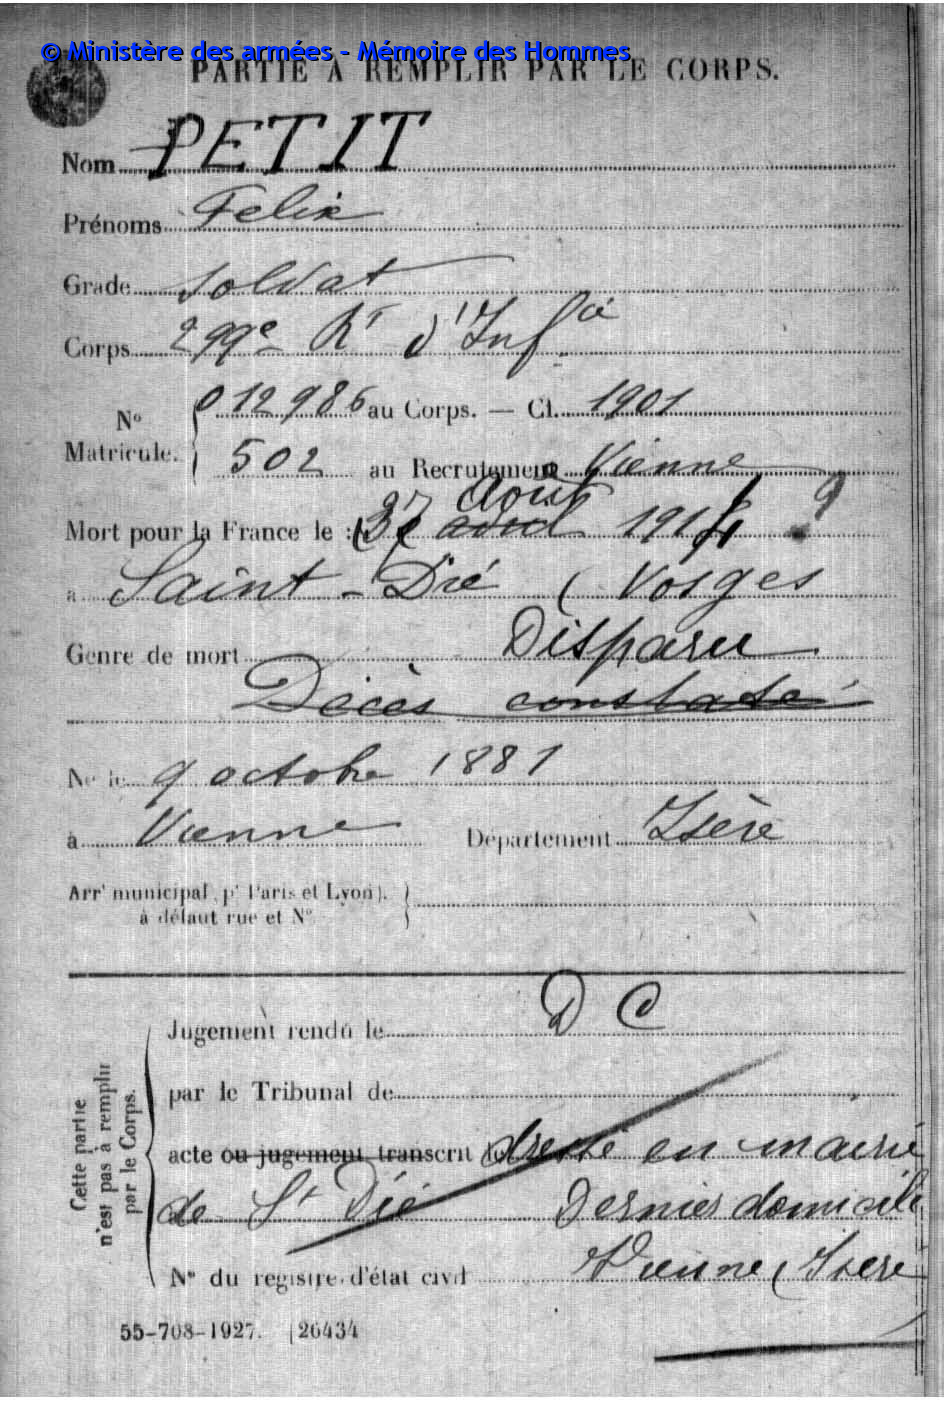 © Ministère des armées - Mémoire des Hommes
PARTIE À REMPLIR PAR LE CORPS.
Nom PETIT
Prénoms Felix
Grade Soldat
Corps 299e Rt d'Infie
No Matricule. 012986 au Corps. — Cl. 1901
502 au Recrutement Vienne
27 Août
Mort pour la France le : avril 1914
à Saint-Dié (Vosges
Genre de mort Disparu
Décès constaté
Né le 9 octobre 1881
à Vienne Département Isère
Arrt municipal (pr Paris et Lyon),
à défaut rue et No.
D C
Jugement rendu le
par le Tribunal de
acte ou jugement transcrit le dressé en mairie
de St Dié Dernier domicile
Vienne (Isère
No du registre d'état civil
Cette partie
n'est pas à remplir
par le Corps.
55-708-1927. [26434